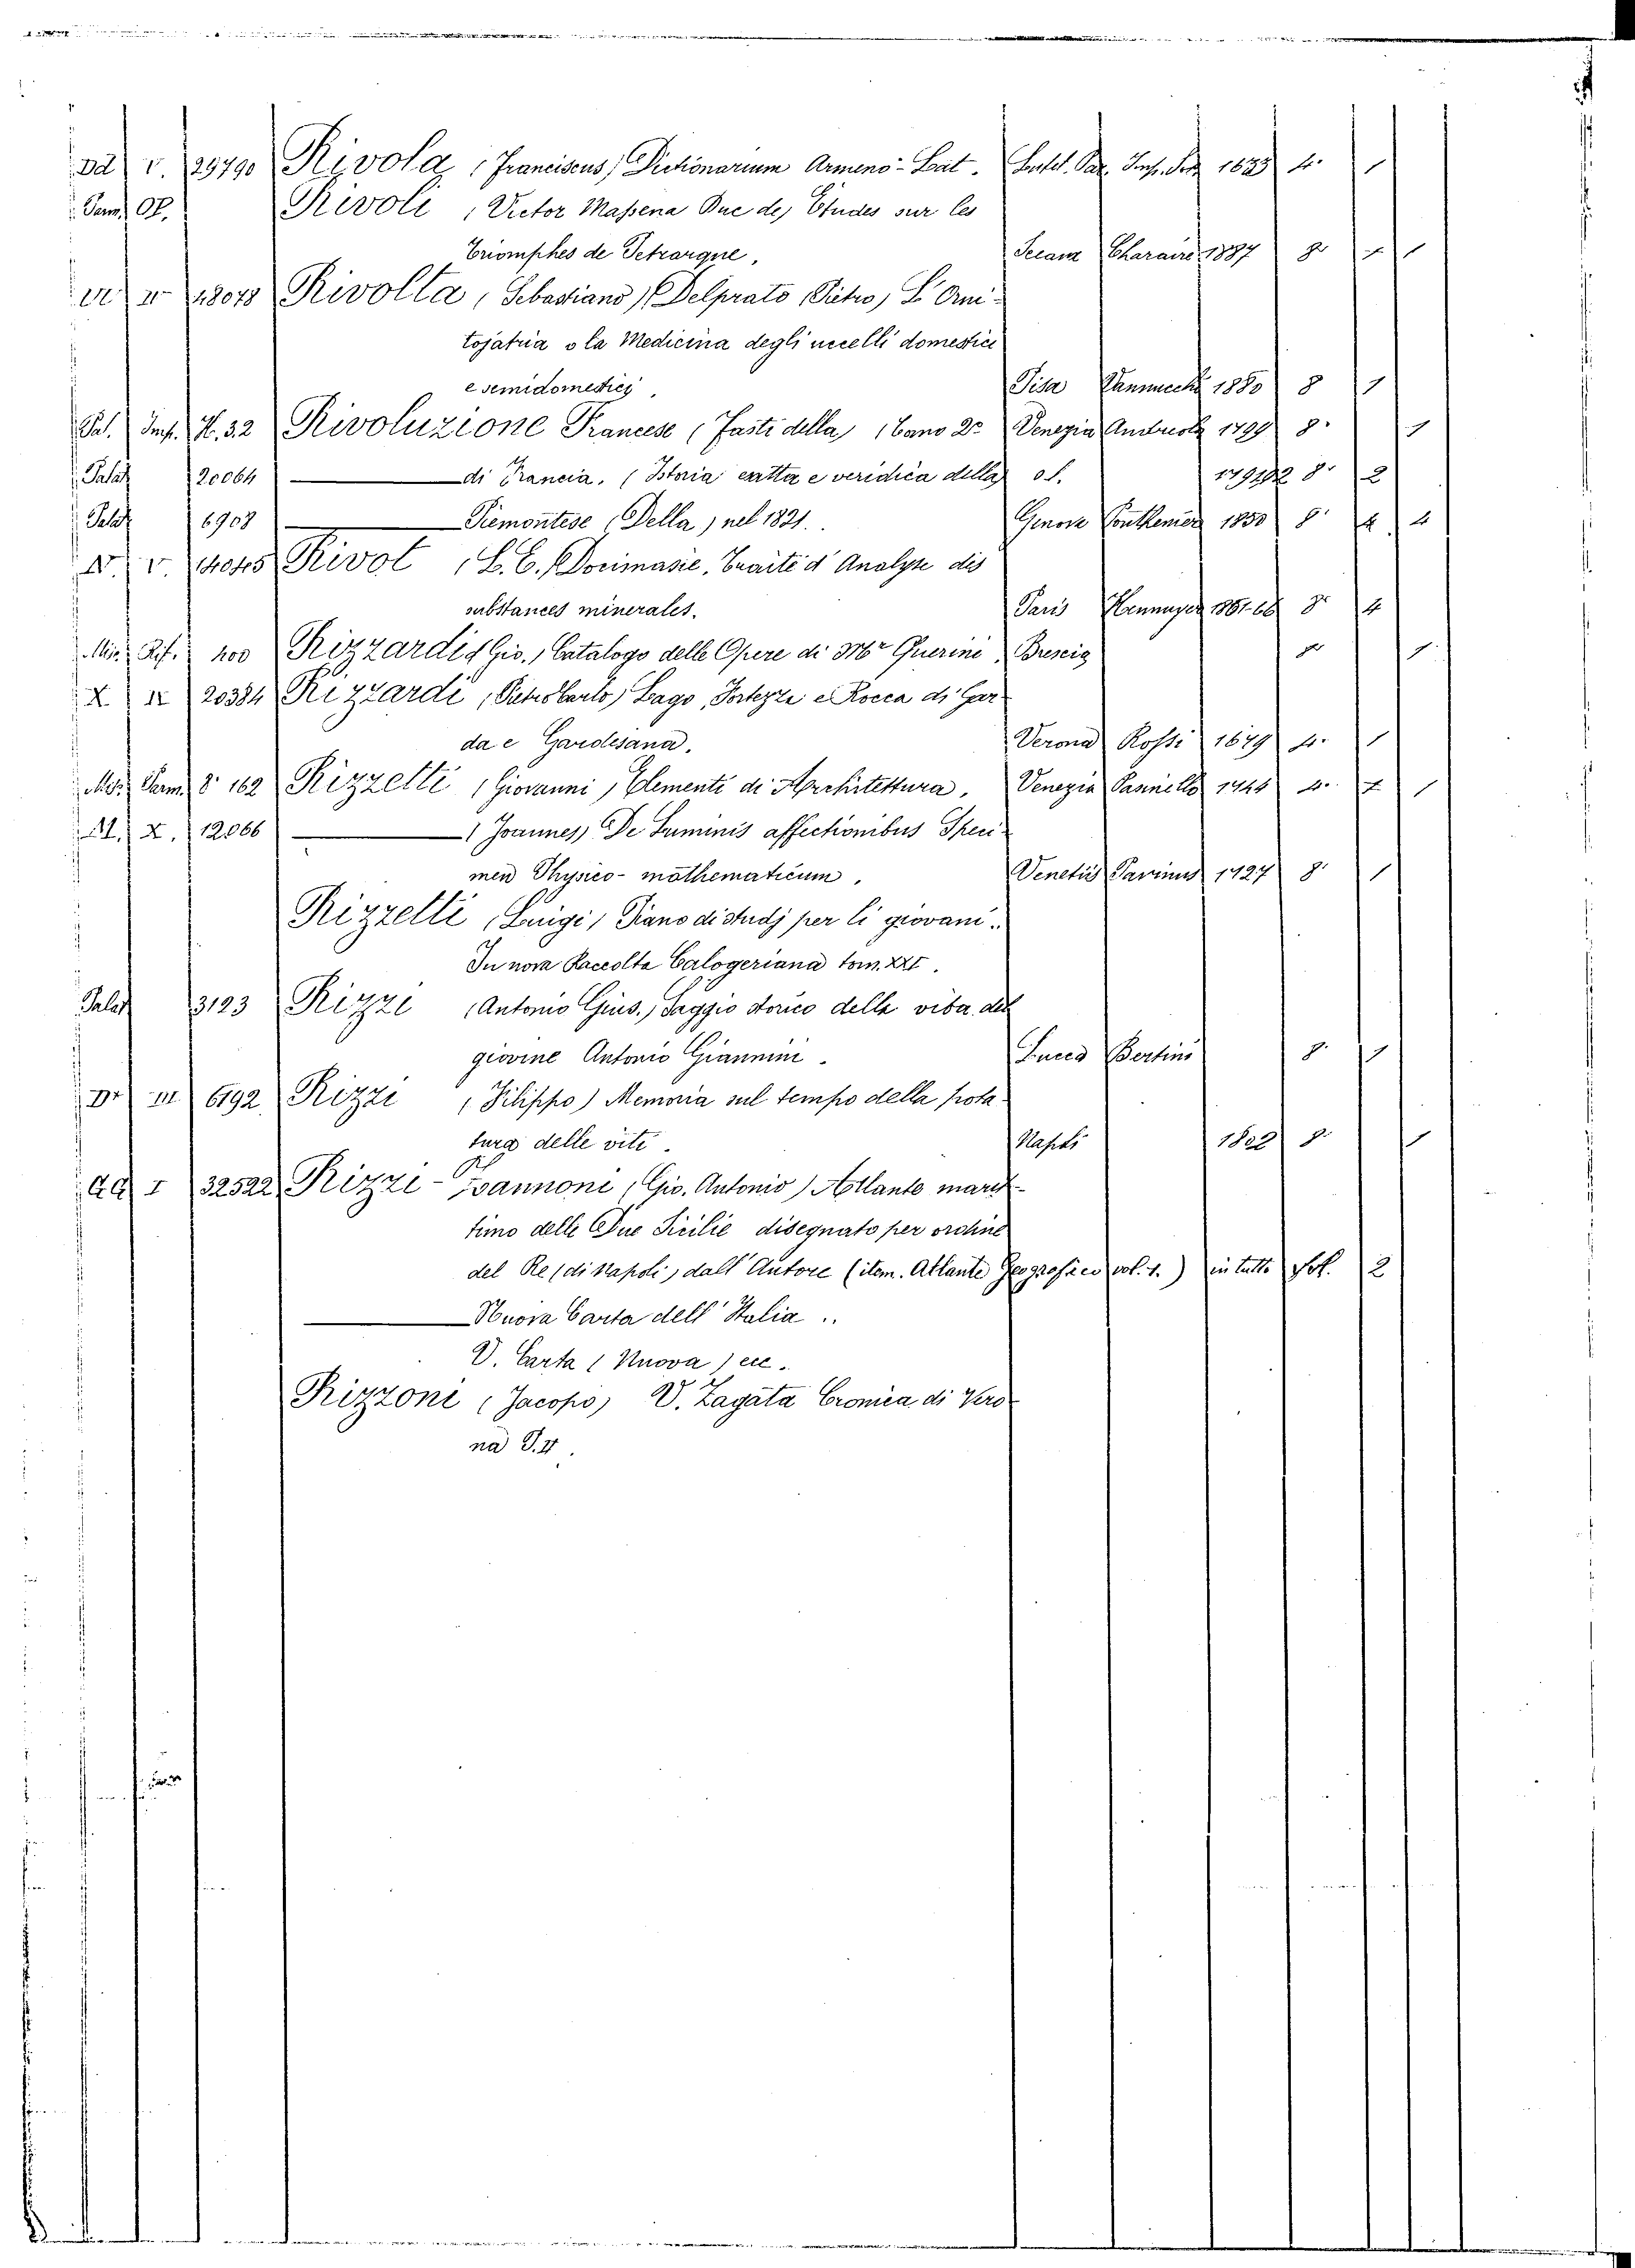 Dd V. 29790 Rivola (Franciscus) Dictionarium Armeno-Lat. 1633 4. 1
Parm. Rivoli (Victor Massena Duc de) Études sur les
Triomphes de Petrarque. Sceaux Charaire 1887 8 1
V 48078 Rivolta (Sebastiano) (Delprato Pietro) L'Orni-
tojatria o la Medicina degli uccelli domestici
e semidomestici. Pisa Vannucchi 1880 8 1
Pal. Imp. N. 32 Rivoluzione Francese (Fasti della) Venezia Andreola 1799 8. 1
Palat 20064 di Francia. (Istoria esatta e veridica della) 8. 2
Palat 6908 Piemontese (Della) nel 1821. Genova Ponthenier 1850 8. 4
V. Rivot (L. E.) Docimasie, Traité d'Analyse des
substances minerales. Paris 8. 4
Mis. Rif. 400 Rizzardi Gio., Catalogo delle Opere di Mr Querini Brescia 1
X IX 20384 Rizzardi, (Pietro Carlo) Lago, Fortezze e Rocca di Gar-
da e Gardesana. Verona Rossi 1679 4. 1
Parm. 8 162 Rizzetti (Giovanni) Elementi di Architettura. Venezia 4. 1
X. 12066 (Joannes) De Luminis affectionibus Speci-
men Physico-mathematicum. Venetiis 1727 8. 1
Rizzetti (Luigi) Piano di studj per li giovani.
In nova Raccolta Calogeriana tom. XXI.
Palat 3123 Rizzi (Antonio Gius.) Saggio storico della vita del
giovine Antonio Giannini. Lucca Bertini 8. 1
III 6192 Rizzi (Filippo) Memoria sul tempo della pota-
tura delle viti. Napoli 8. 1
I 32522 Rizzi-Zannoni (Gio. Antonio) Atlante marit-
timo delle Due Sicilie disegnato per ordine
del Re (di Napoli) dall'Autore (item. Atlante Geografico vol. 1.) in tutto fol. 2
Nuova Carta dell'Italia..
V. Carta (Nuova) ecc.
Rizzoni (Jacopo) V. Zagata Cronica di Vero-
na